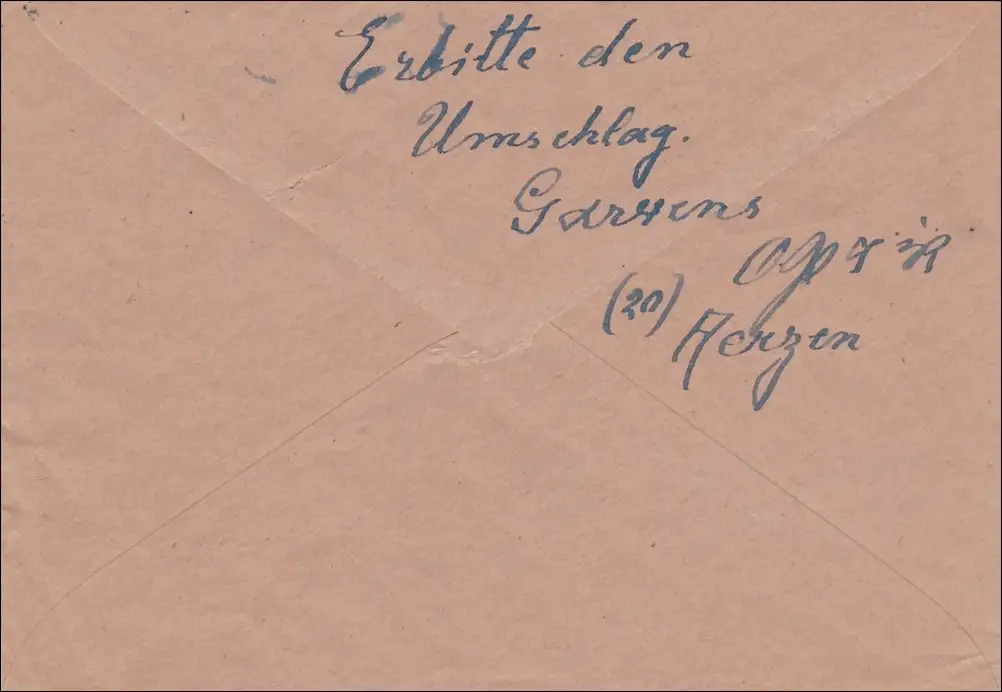 Erbitte den
Umschlag.
Garvens
(20)
Aerzen